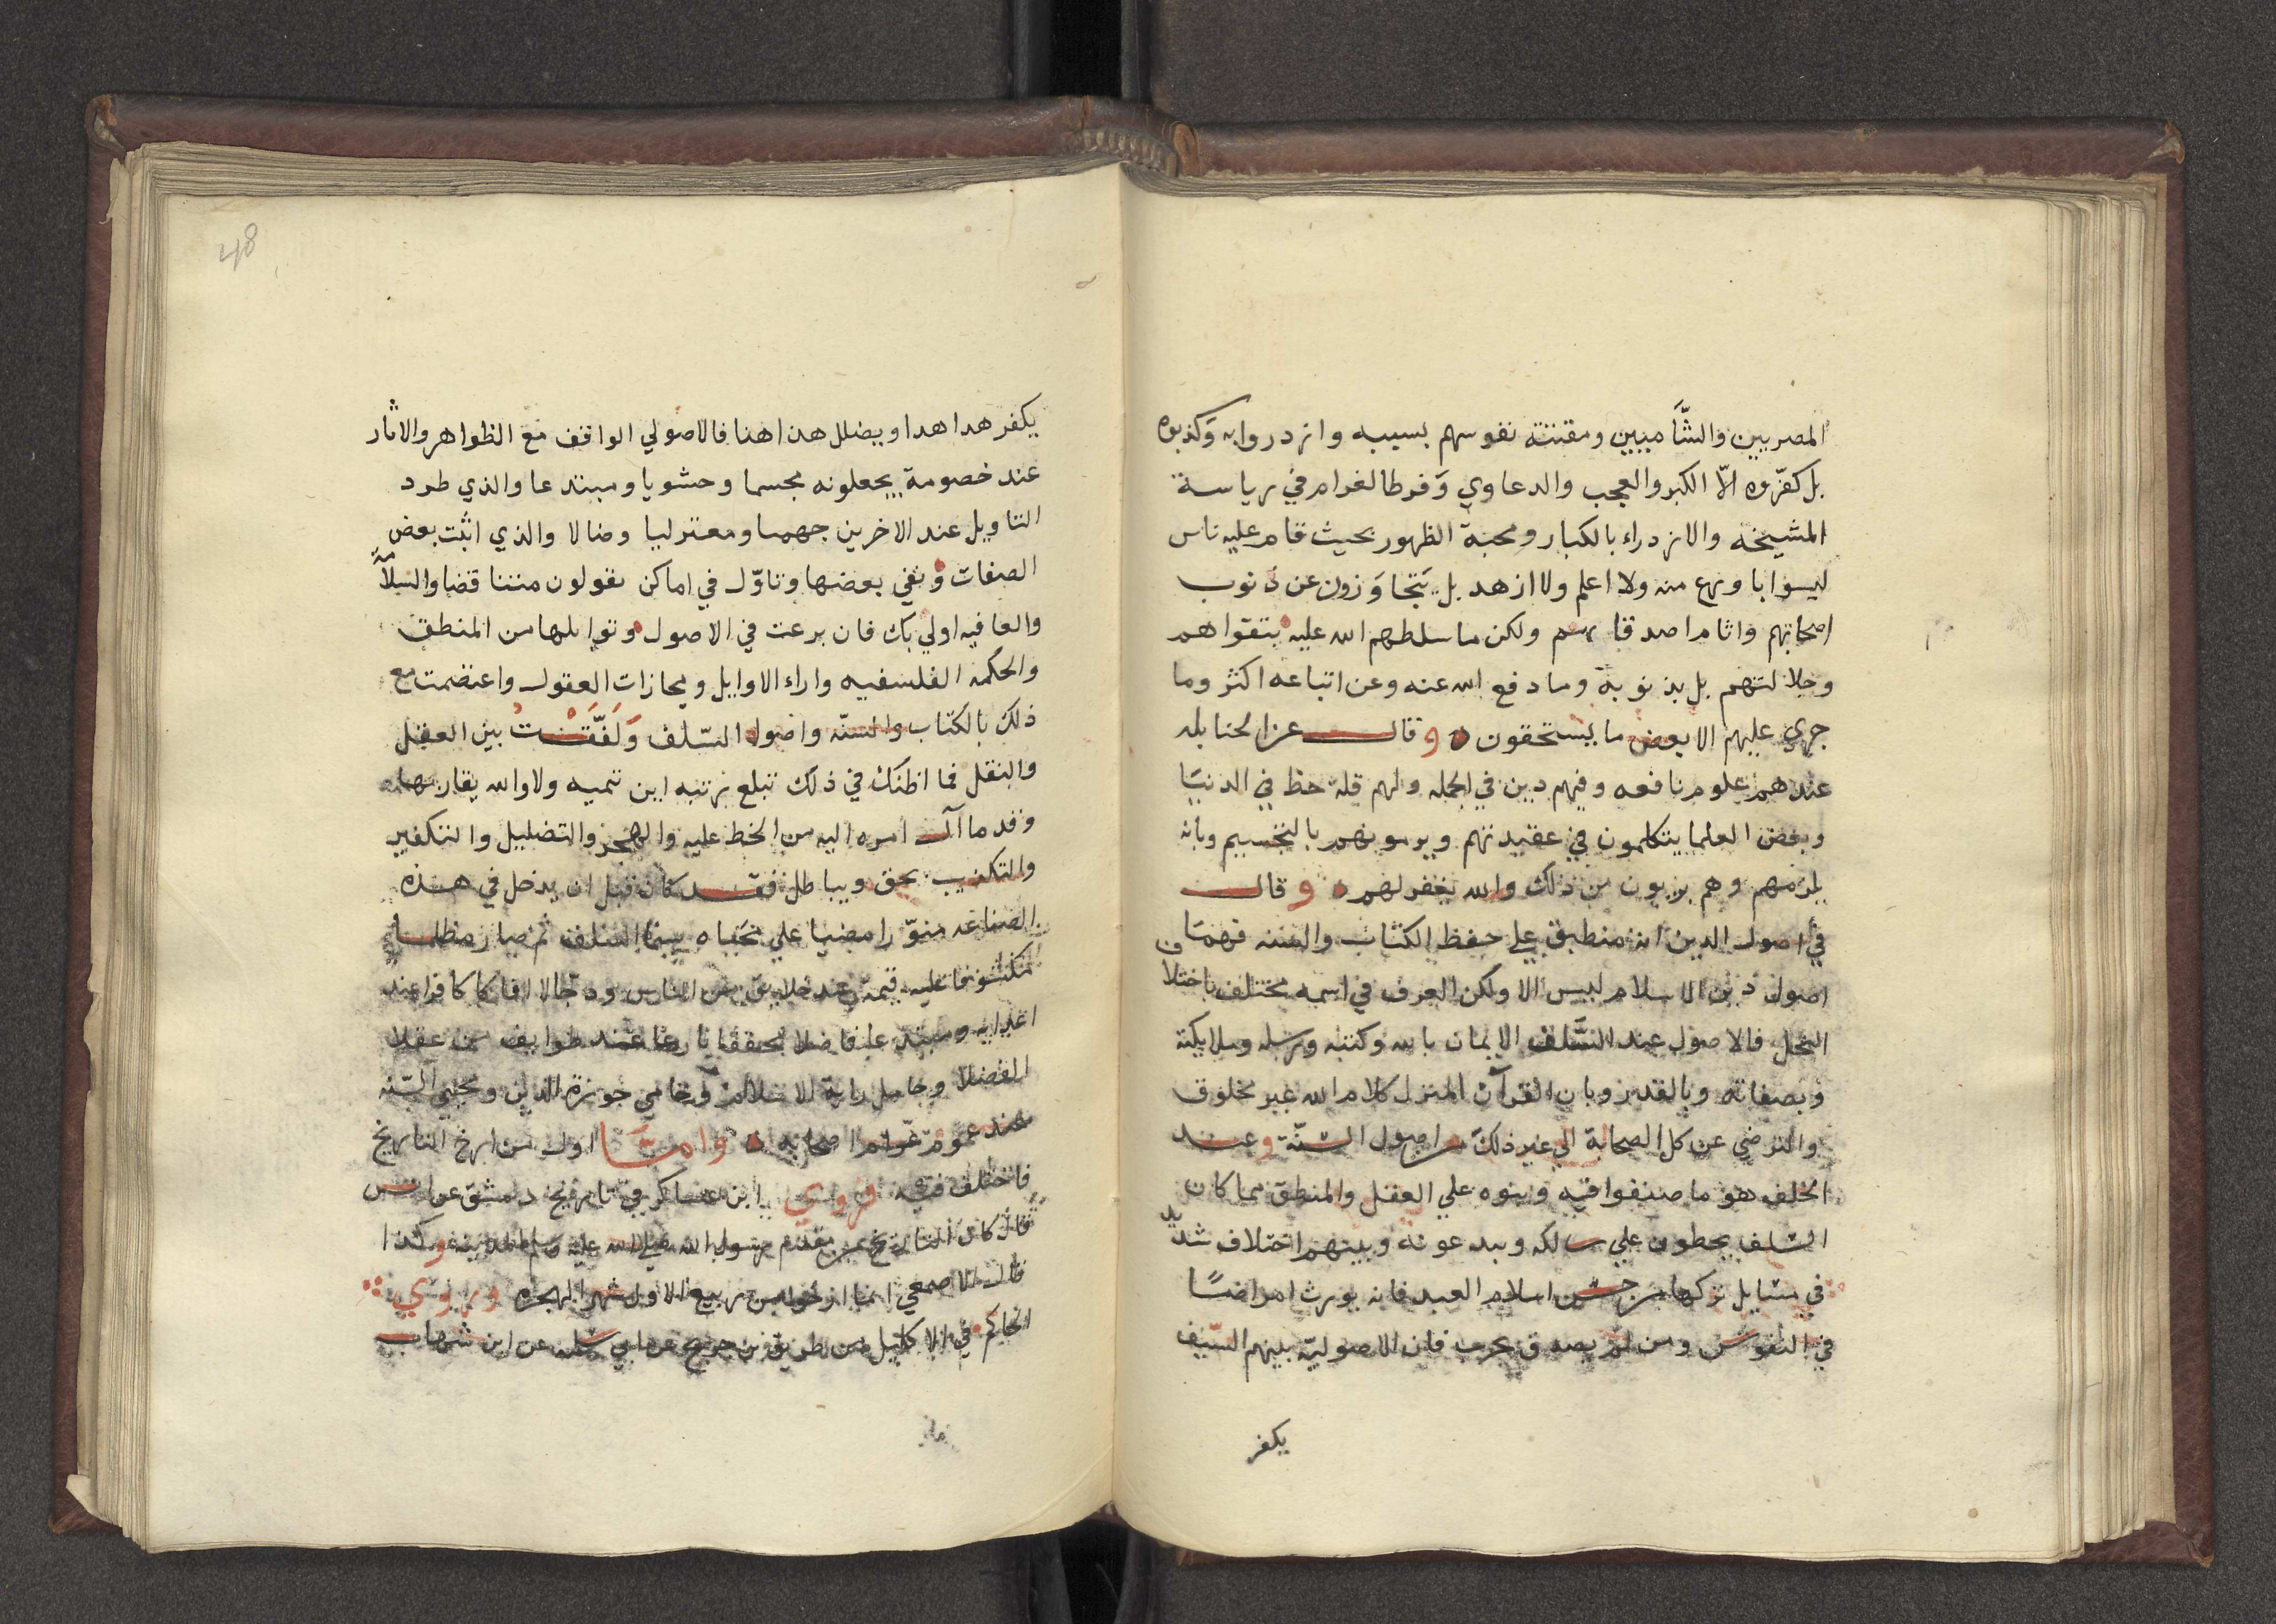 المصريين والشَّاميين ومقتته نفوسهم بسببه وازدروا به وَكذبوه
بل كفّروه الاّ الكبر والعجب والدعاوي وَفرط الغرام في رياسة
المشيخه والازدراء بالكبار ومحبة الظهور بحيث قام عليه ناس
ليسوا باورع منه ولا اعلم ولا ازهد بل يَتجاوَزون عن ذنوب
اصحابهم واثام اصدقايهم ولكن ما سلطهم الله عليه بتقواهم
وجلالتهم بل بذنوبه وما دفع الله عنه وعن اتباعه اكثر وما
جري عليهم الا بعض ما يستحقون ه وقال عن الحنابله
عندهم علوم نافعه وفيهم دين في الجمله ولهم قلة حظ في الدنيَا
وبعض العلما يتكلمون في عقيدتهم ويرمونهم بالتجسيم وبانه
يلزمهم وهم بريون من ذلك والله يغفر لهم ه وقال
في اصول الدين انه منطبق علي حفظ الكتاب والسنه فهمَا
اصول دين الاسلام ليس الا ولكن العرف في اسمه مختلف باختلاف
النحل فالاصول عند السَّلف الايمان بالله وكتبه ورسله وملايكته
وبصفاته وبالقدر وبان القرآن المنزل كلام الله غير مخلوق
والترضي عن كل الصحابة الي غير ذلك من اصول السّنّة وعند
الخلف هو ما صنفوا فيه وبنوه علي العقل والمنطق مما كان
السّلف يحطون علي سالكه ويبدعونه وبينهم اختلاف شديد
في مسَايل تركها من حسن اسلام العبد فانه يورث امراضًا
في النفوس ومن لم يصدق يجرب فان الاصوليّه بينهم السّيف
يكفر
48
يكفر هدا هدا ويضلل هذا هذا فالاصولي الواقف مع الظواهر والاثار
عند خصومة يجعلونه مجسما وحشويا ومبتدعا والذي طرد
التاويل عند الاخرين جهميا ومعتزليا وضالا والذي اثبت بعض
الصفات ونفي بعضها وتاوّل في اماكن يقولون متناقضا والسلامَة
والعافيه اولي بك فان برعت في الاصول وتوابلها من المنطق
والحكمه الفلسفيه واراء الاوايل ومحازات العقول واعتصمت مع
ذلك بالكتاب والسنّه واصول السّلف وَلَفَّقْتَ بين العقل
والنقل فما اظنك في ذلك تبلغ رتبه ابن تيميه ولا والله يقاربها
وقد ما آل امره اليه من الحط عليه والهجر والتضليل والتكفير
والتكذيب بحق وبباطل فقد كان قبل ان يدخل في هذه
الصناعه منوّرا مضيا علي محياه سيما السلف ثم صار مظلما
مكسوفا عليه قتمة عند خلايق من الناس ودجّالا افاكا كافرا عند
اعدايه ومبتدعا فاضلا محققا بارعا عند طوايف من عقلا
الفضلا وحامل راية الاسلام وحامي حوزة الدين ومحيي السّنه
عند عموم عوام اصحابه ه وامَّا اول من ارخ التاريخ
فاختلف فيه فروي ابن عساكر في تاريخ دمشق عن انس
قال كان التاريخ من مقدم رسول الله صلي الله عليه وسلم المدينه وكذا
قال الاصمعي انما ارخوا من ربيع الاول شهر الهجره وروي
الحاكم في الاكليل من طريق بن جريج عن ابي سلمه عن ابن شهاب